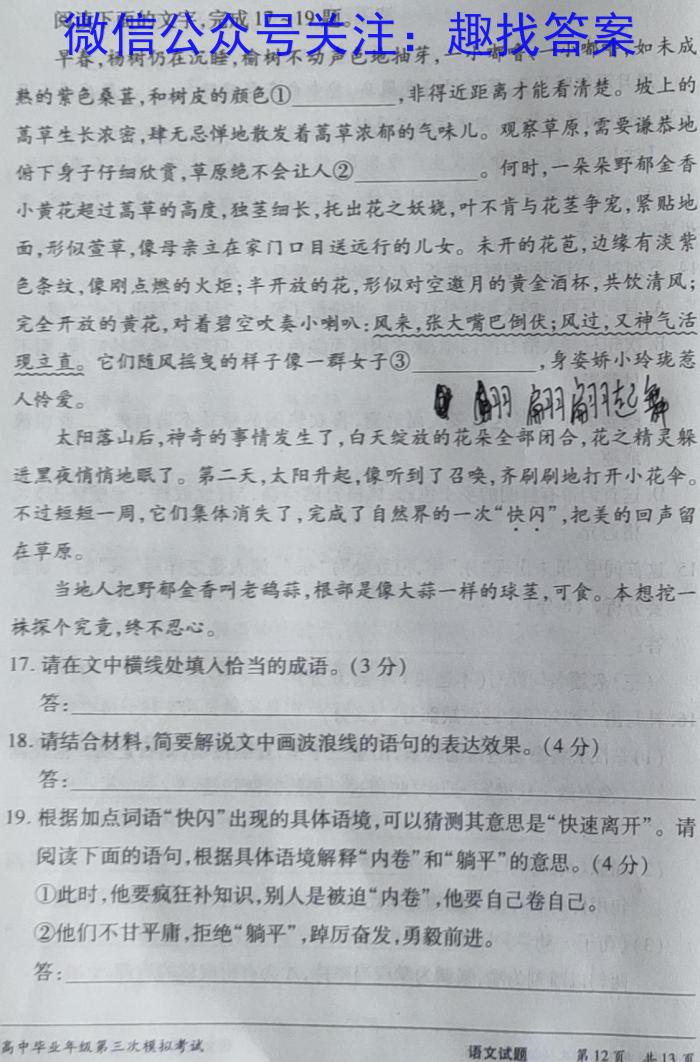 阅读下面的文字,完成17~19题。
微信公众号关注：趣找答案
早春,杨树仍在沉睡,榆树不动声色地抽芽,一小嘟噜一小嘟噜,如未成
熟的紫色桑葚,和树皮的颜色①________,非得近距离才能看清楚。坡上的
蒿草生长浓密,肆无忌惮地散发着蒿草浓郁的气味儿。观察草原,需要谦恭地
俯下身子仔细欣赏,草原绝不会让人②________。何时,一朵朵野郁金香
小黄花超过蒿草的高度,独茎细长,托出花之妖娆,叶不肯与花茎争宠,紧贴地
面,形似萱草,像母亲立在家门口目送远行的儿女。未开的花苞,边缘有淡紫
色条纹,像刚点燃的火炬;半开放的花,形似对空邀月的黄金酒杯,共饮清风;
完全开放的黄花,对着碧空吹奏小喇叭:风来,张大嘴巴倒伏;风过,又神气活
现立直。它们随风摇曳的样子像一群女子③________,身姿娇小玲珑惹
人怜爱。
翩翩起舞
太阳落山后,神奇的事情发生了,白天绽放的花朵全部闭合,花之精灵躲
进黑夜悄悄地眠了。第二天,太阳升起,像听到了召唤,齐刷刷地打开小花伞。
不过短短一周,它们集体消失了,完成了自然界的一次“快闪”,把美的回声留
在草原。
当地人把野郁金香叫老鸹蒜,根部是像大蒜一样的球茎,可食。本想挖一
株探个究竟,终不忍心。
17. 请在文中横线处填入恰当的成语。(3分)
答:
18. 请结合材料,简要解说文中画波浪线的语句的表达效果。(4分)
答:
19. 根据加点词语“快闪”出现的具体语境,可以猜测其意思是“快速离开”。请
阅读下面的语句,根据具体语境解释“内卷”和“躺平”的意思。(4分)
①此时,他要疯狂补知识,别人是被迫“内卷”,他要自己卷自己。
②他们不甘平庸,拒绝“躺平”,踔厉奋发,勇毅前进。
答:
高中毕业年级第三次模拟考试 语文试题 第12页 共13页